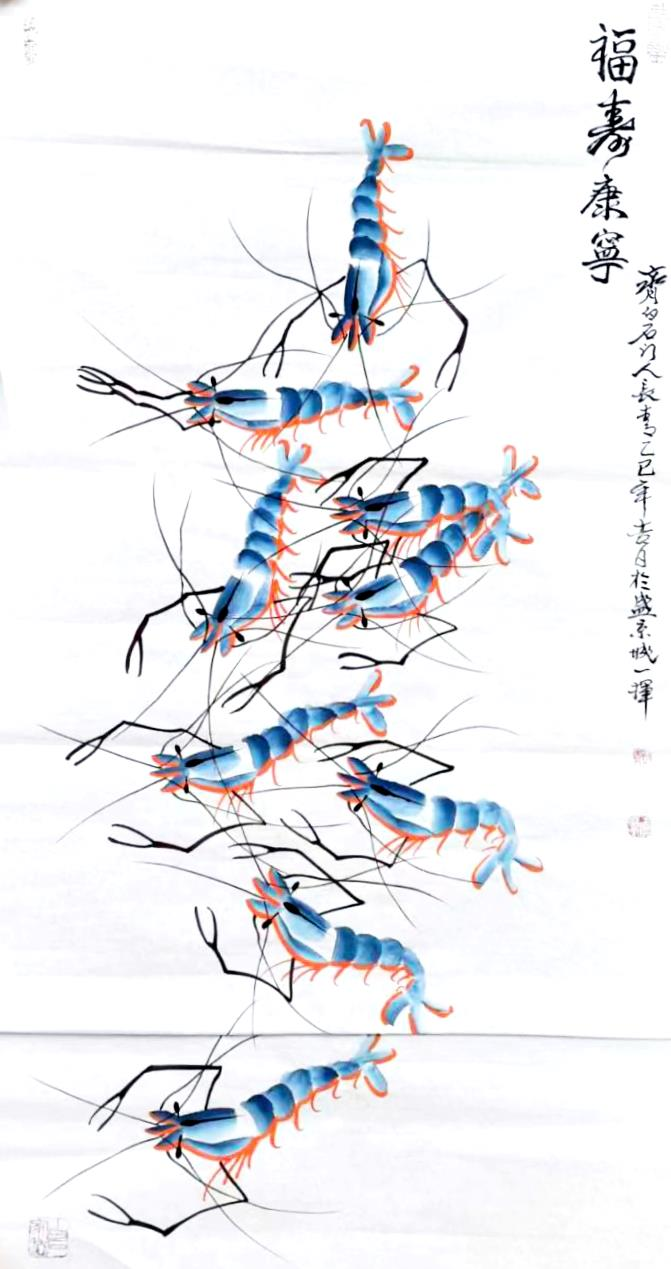 福壽康寧
齊白石门人長青乙巳年吉月於盛京城一揮